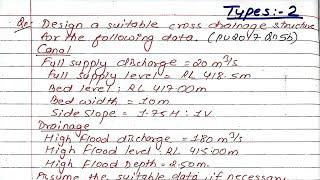 Types:- 2
Qn: Design a suitable cross drainage structure
for the following data. (PU2017 Qn5b)
Canal
Full supply discharge = 20 m³/s
Full supply level = RL 418.5m
Bed level: RL 417.00m
Bed width = 10m
Side slope = 1.75H : 1V
Drainage
High flood discharge = 180 m³/s
High Flood level: RL 415.00m
High Flood Depth = 2.50m.
Assume the suitable data if necessary